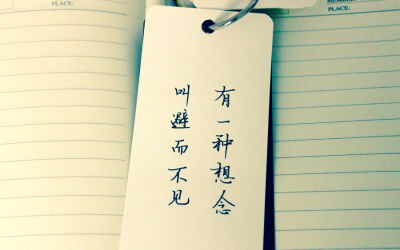 PLACE:
PLACE:
有一种想念
叫避而不见